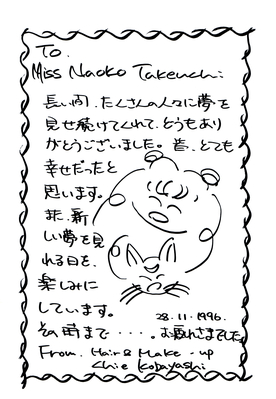 To.
Miss Naoko Takeuchi:
長い間、たくさんの人々に夢を
見せ続けてくれて、どうもあり
がとうございました。皆、とても
幸せだったと
思います。
また、新
しい夢を見
れる日を、
楽しみに
しています。
28.11.1996.
その時まで・・・・。お疲れさまでした。
From. Hair & Make-up
Chie Kobayashi